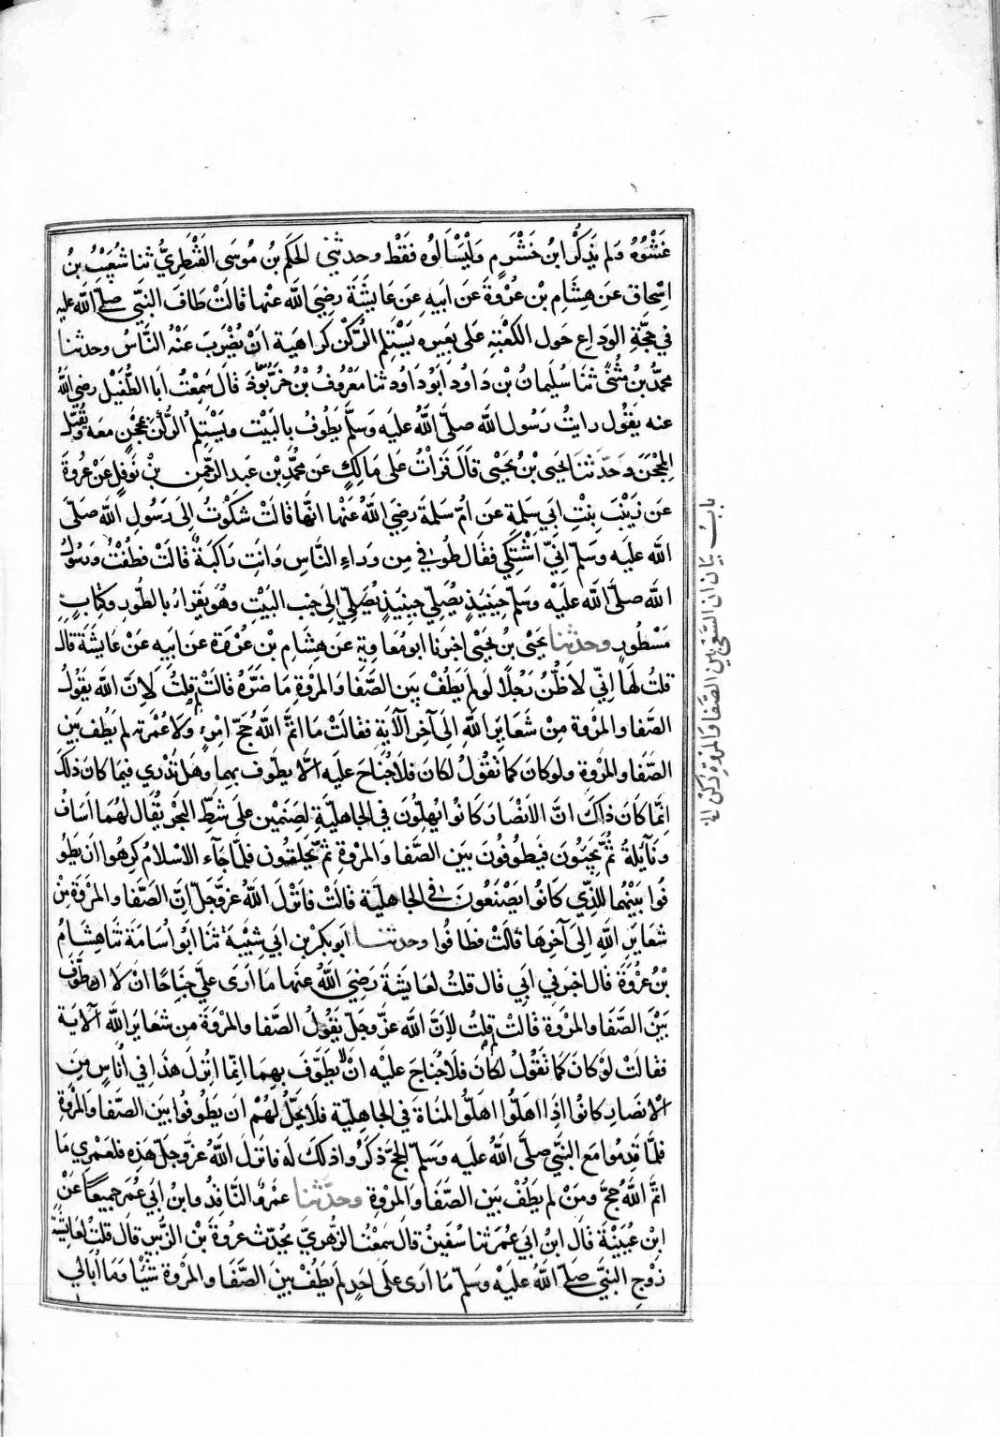 غَشُوْهُ وَلم يَذكُر ابنُ خَشْرَمٍ وَلْيَسْأَلُوه فَقَطْ وحدثني الحَكَم بنُ مُوسَى القَنْطَرِيُّ ثنا شُعَيْبُ بنُ
اِسْحاق عَن هِشَامِ بْن عُرْوَةَ عَن ابيهِ عَن عَايشَةَ رضِيَ اللَّه عنها قالَتْ طَافَ النبّي صلى اللَّه عليه
في حَجَّةِ الوَدَاعِ حَول الكَعْبَةِ عَلى بَعِيرِه يَسْتَلِم الرُّكْنَ كَرَاهية اَنْ يُضْرَبَ عَنْهُ النَّاسُ وحدثنا
محمَّدُ بنُ مُثنَّى ثَنَا سُلَيمانُ بْن دَاوُد ابُو دَاوُد ثَنا مَعْرُوفُ بْنُ خَرَّبُوذَ قَال سَمِعْتُ اَبا الطُّفَيْل رضي اللَّه
عنه يَقُول رايتُ رَسُول اللَّه صلّى اللَّهُ عَلَيه وَسَلَّم يَطُوفُ بالبَيْت ويَسْتَلِمُ الرُّكْنَ بمِحْجَنٍ مَعه وَيُقَبِّل
المِحْجَنَ وَحَدّثنا يَحيى بْنُ يحْيَى قَالَ قَرَاْتُ عَلى مَالِكٍ عَن محمَّدِ بْن عَبد الرَّحمٰن بْن نَوفَلٍ عَنْ عُروَةَ
عَن زَيْنَبَ بِنْتِ ابي سَلَمة عَن أُمِّ سَلَمةَ رضِيَ اللَّهُ عَنْها انَّها قَالَتْ شَكَوْتُ اِلى رَسُولِ اللَّه صَلّى
اللَّه عَلَيه وَسَلّم اِنِّي اَشْتَكِي فَقَال طُوفي مِن وَرَاءِ النَّاسِ وَاَنتِ رَاكِبَةٌ قالَتْ فطُفْتُ ورَسُولُ
اللَّه صلّى اللَّه عَلَيْه وسَلّم حِينَيذٍ يُصَلِّي حِينَيذٍ يُصَلِّي اِلى جَنب البَيْتِ وهُوَ يَقرَاُ بالطُّورِ وكِتَابٍ
مَسْطُورٍ وحدثنا يَحْيَى بنُ يَحْيَى اخبرَنا ابو مُعَاوِية عَن هِشَامِ بْن عُرْوَة عَن ابيه عَنْ عَايشَةَ قال
قلتُ لهَا اِنّي لاَظُنُّ رَجُلًا لَو لَم يَطُفْ بَين الصَّفَا وَالمَرْوَةِ مَا ضَرَّهُ قَالَتْ لِمَ قلتُ لاَِنَّ اللَّه يَقُولُ
الصَّفا وَالمَرْوَة مِنْ شَعَايرِ اللَّهِ اِلَى آخِر الآيَةِ فقَالَتْ مَا اتَمَّ اللَّهُ حَجّ امْرِءٍ ولَا عُمْرَته لم يَطُف بَين
الصَّفا وَالمَرْوَةِ ولو كانَ كما تَقُولُ لكَانَ فَلَا جُنَاحَ عَلَيه الَّا يطَّوف بهما وهَل تَدْري فيمَا كانَ ذلكَ
اِنَّما كَانَ ذاكَ انَّ الاَنْصَار كَانُوا يُهِلّونَ في الجَاهِليَّةِ لِصَنَمَيْنِ عَلى شَطِّ البَحْرِ يُقَال لهُمَا اَسَافُ
ونَآيلَةُ ثُمّ يَجِيئُونَ فيَطُوفُونَ بَين الصَّفَا وَالمَرْوَةِ ثمّ يَحْلِقُون فلمَّا جَآء الاسْلامُ كرِهُوا اَنْ يَطُو
فُوا بَيْنَهُما للَّذِي كَانُوا يَصْنَعُونَ في الجَاهليَّة قالَتْ فأنزَلَ اللَّهُ عَزَّوَجَلَّ اِنَّ الصَّفا والمَرْوَةَ مِنْ
شَعَايرِ اللَّهِ اِلَى آخِرِهَا قَالَتْ فَطَافُوا وحدثنا اَبُو بكر بْن ابي شَيْبَة ثَنَا اَبُو اُسَامَة ثَنا هِشَامُ
بْنُ عُرْوَةَ قَال اخبرَني ابي قال قلتُ لعَايشَةَ رَضِيَ اللَّهُ عَنها مَا اَرَى عَلَيّ جُنَاحًا اَنْ لَا اَطَّوَّفَ
بَيْنَ الصَّفَا وَالمَرْوَةِ قَالَتْ لِمَ قلتُ لاِنَّ اللَّه عَزَّ وجَلّ يَقُولُ الصَّفا والمَرْوَةَ مِن شعَايرِ اللَّه الآيَة
فقَالَتْ لَوْ كانَ كمَا تَقُولُ لكانَ فَلَا جُنَاحَ عَلَيْه اَنْ لا يَطَّوَّفَ بهِمَا اِنَّما اُنْزِلَ هَذا في اُنَاسٍ مِنَ
الاَنْصَارِ كانُوا اِذَا اهَلُّوا اهَلُّوا لمَنَاةَ في الجَاهِليَّة فلا يَحِلُّ لَهُمْ اَن يَطُوفُوا بَين الصَّفَا وَالمَرْوَةِ
فلَمَّا قَدِمُوا مَعَ النبَّي صلَّى اللَّهُ عَلَيه وَسَلّم للحَجّ ذكَرُوا ذلكَ لَه فأنزَل اللَّهُ عَزَّ وجَلّ هَذِهِ فلَعَمْرِي مَا
اتَمَّ اللَّهُ حَجَّ ومَنْ لم يَطُفْ بَين الصَّفَا وَالمَرْوَةِ وحدَّثنا عَمْرٌو النَّاقِدُ وابنُ ابي عُمَر جميعًا عَنْ
ابْن عُيَيْنَة قَالَ ابنُ ابي عُمَرَ ثنا سُفينُ قَالَ سَمعْتُ الزُّهْرِيَّ يُحَدّثُ عن عُروَةَ بْن الزُّبَيرِ قال قلتُ لعَايشَةَ
زَوْجِ النبَّي صلى اللَّهُ عَلَيْه وَسَلّم مَا اَرَى عَلَى اَحَدٍ لَم يَطُفْ بينَ الصَّفَا وَالمَرْوَة شَيْئا ومَا اُبَالي
باب بيان ان السَّعْيَ بين الصَّفا وَالمَروَةِ رُكنٌ الخ